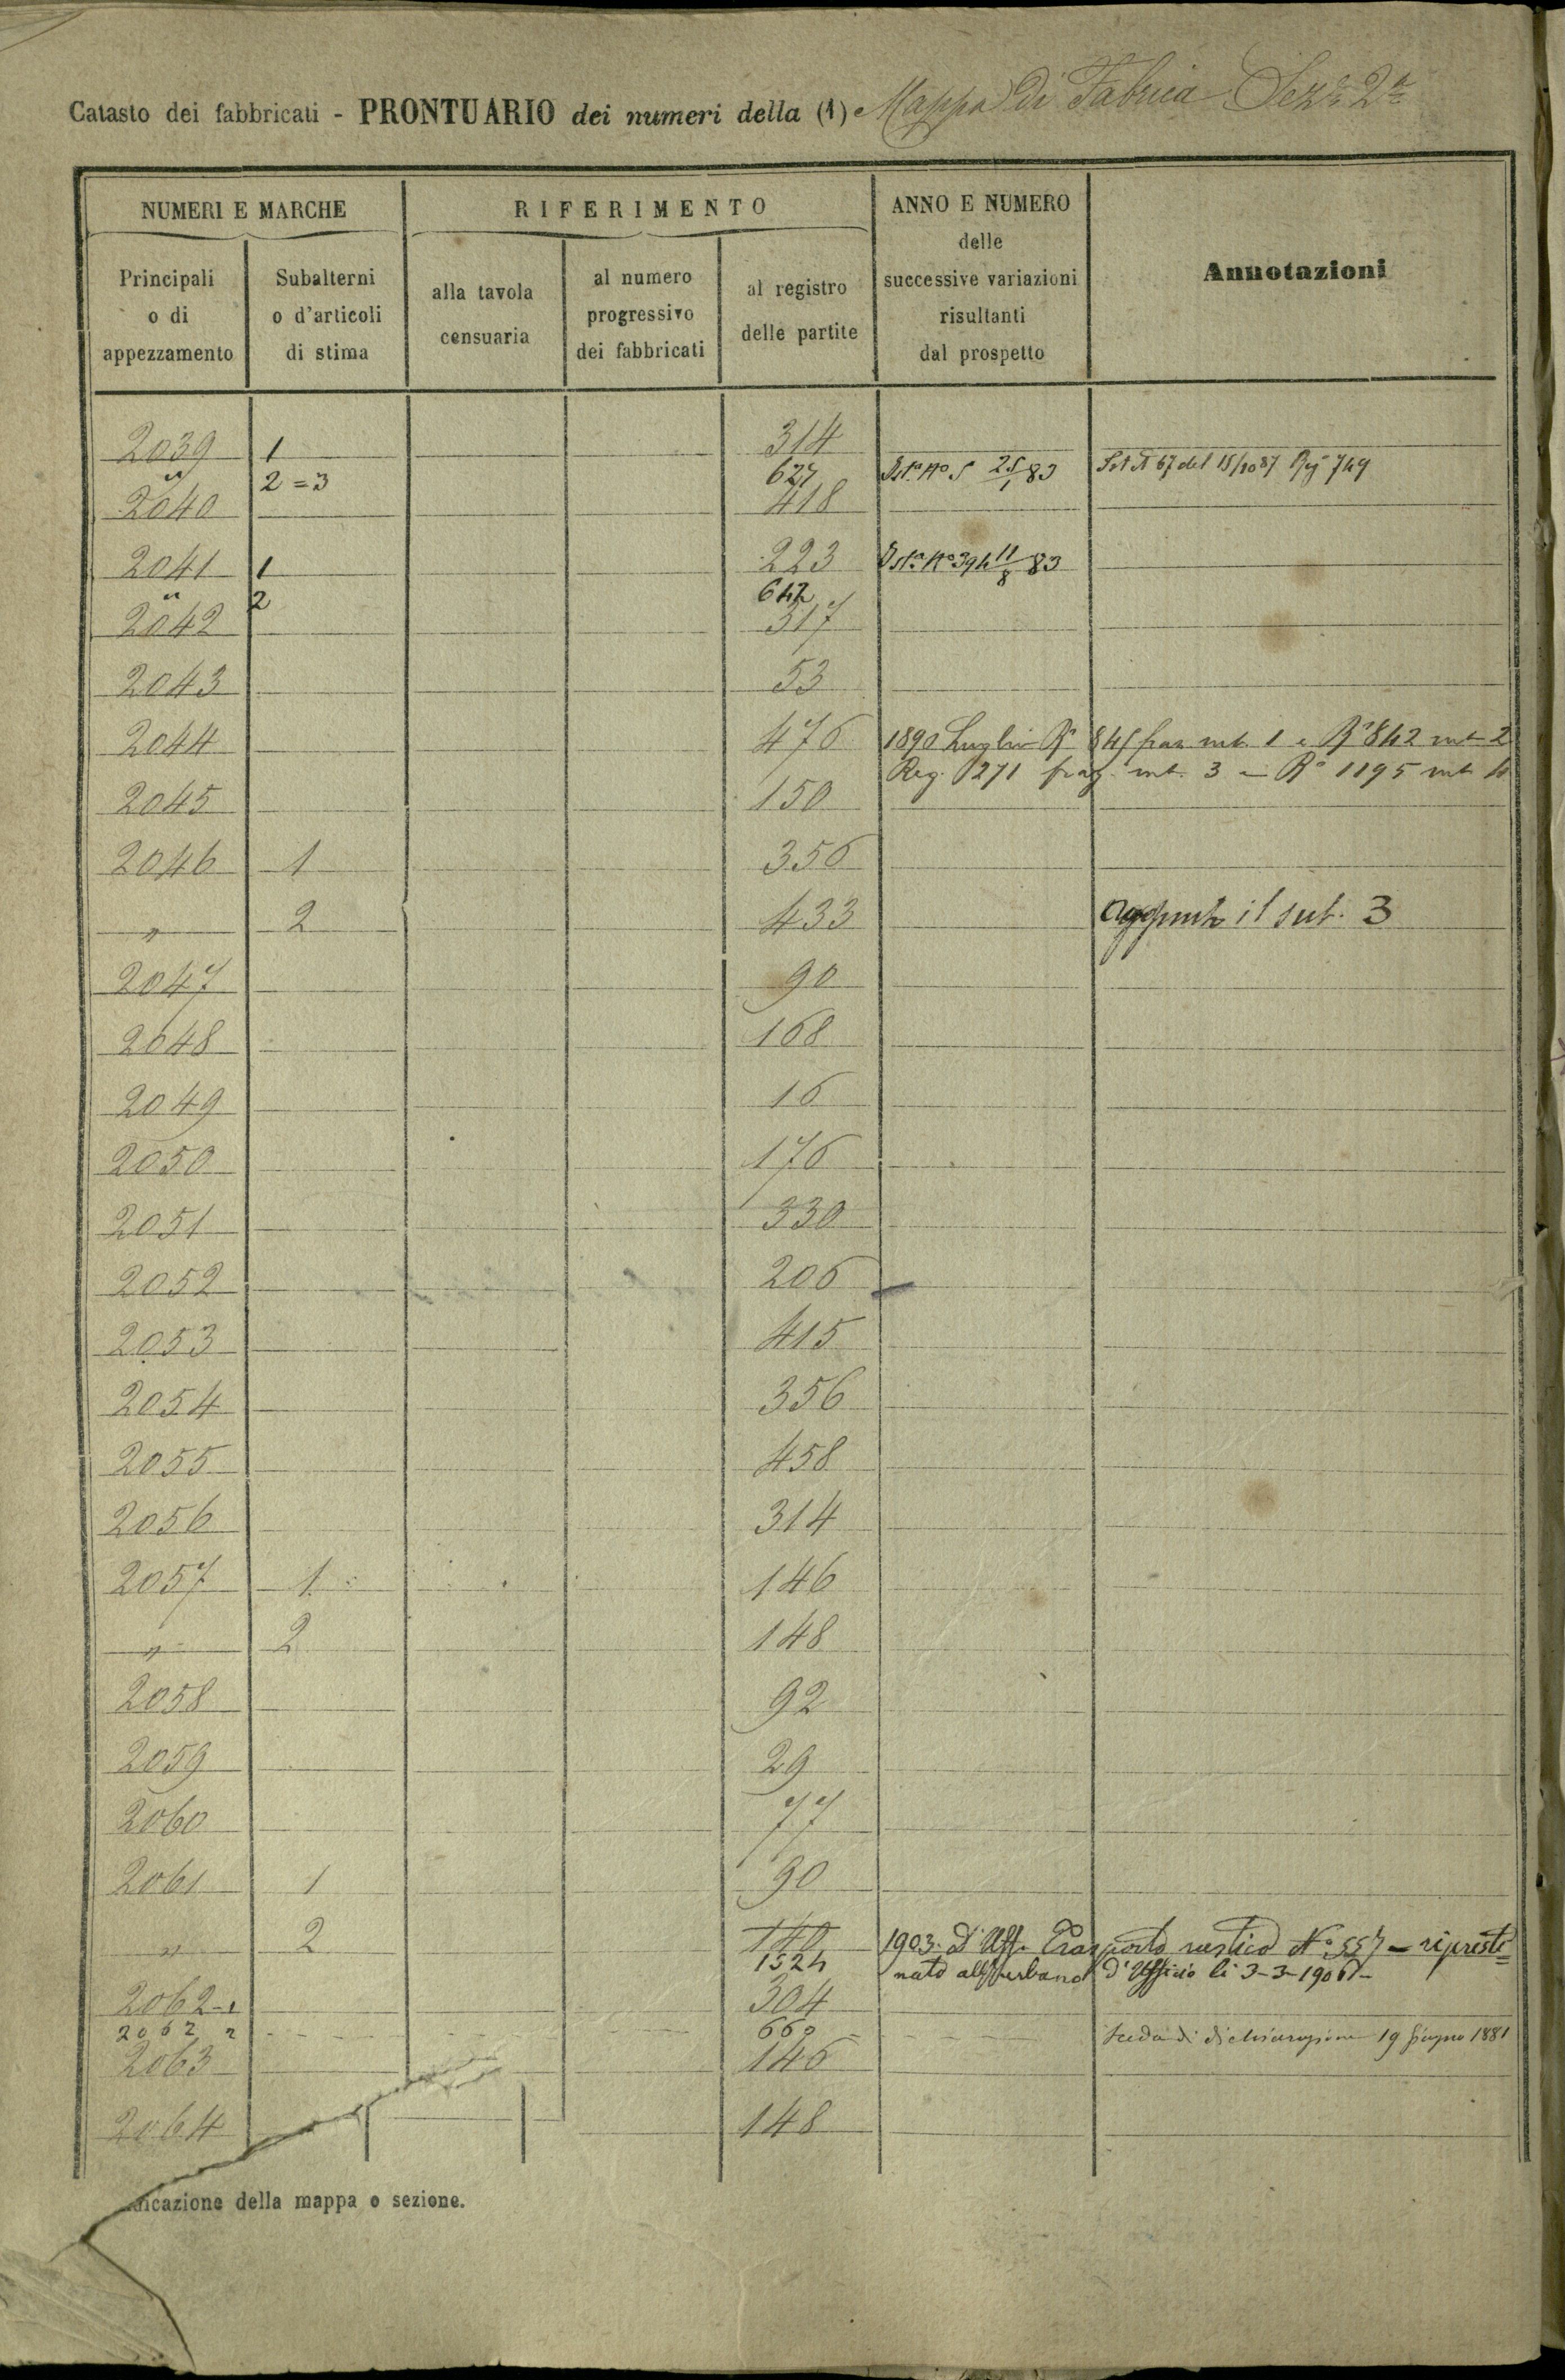 Catasto dei fabbricati - PRONTUARIO dei numeri della (1) Mappa di Fabrica Sez.e 2a
NUMERI E MARCHE
RIFERIMENTO
ANNO E NUMERO
delle
successive variazioni
risultanti
dal prospetto
Annotazioni
Principali
o di
appezzamento
Subalterni
o d'articoli
di stima
alla tavola
censuaria
al numero
progressivo
dei fabbricati
al registro
delle partite
2039 1 314
" 2=3 627 No 5 25/1 83 67 del 15/10 87 Reg 749
2040 418
2041 1 223 No 394 11/8 83
" 2 642
2042 317
2043 53
2044 476 1890 Luglio 1 e 842 2
Reg. 1271 3 1195 4
2045 150
2046 1 356
" 2 433 aggiunto il sub. 3
2047 90
2048 168
2049 16
2050 176
2051 330
2052 206
2053 415
2054 356
2055 458
2056 314
2057 1 146
" 2 148
2058 92
2059 29
2060 77
2061 1 90
" 2 140 1903. d'Uff. Trasporto rustico No 557 - ripristi=
1524 nato all'urbano d'Ufficio li 3-3-1906-
2062-1 304
2062 2 660 Scheda di dichiarazione 19 Giugno 1881
2063 146
2064 148
dicazione della mappa o sezione.